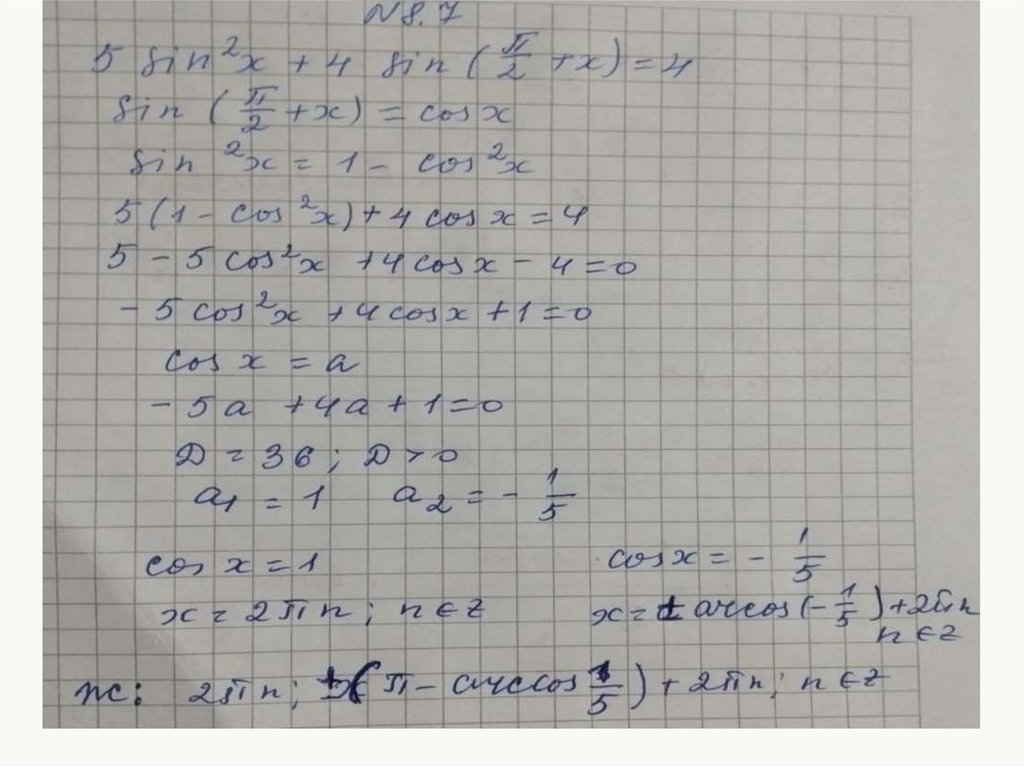 N 8.7
5 sin²x + 4 sin (π/2 + x) = 4
sin (π/2 + x) = cos x
sin ²x = 1 - cos²x
5 (1 - cos²x) + 4 cos x = 4
5 - 5 cos²x + 4 cos x - 4 = 0
- 5 cos²x + 4 cos x + 1 = 0
cos x = a
- 5a + 4a + 1 = 0
D = 36 ; D > 0
a₁ = 1 a₂ = - 1/5
cos x = 1 cos x = - 1/5
x = 2πn ; n ∈ z x = ± arccos (- 1/5) + 2πn
n ∈ z
ж: 2πn ; ±(π - arccos 1/5) + 2πn ; n ∈ z